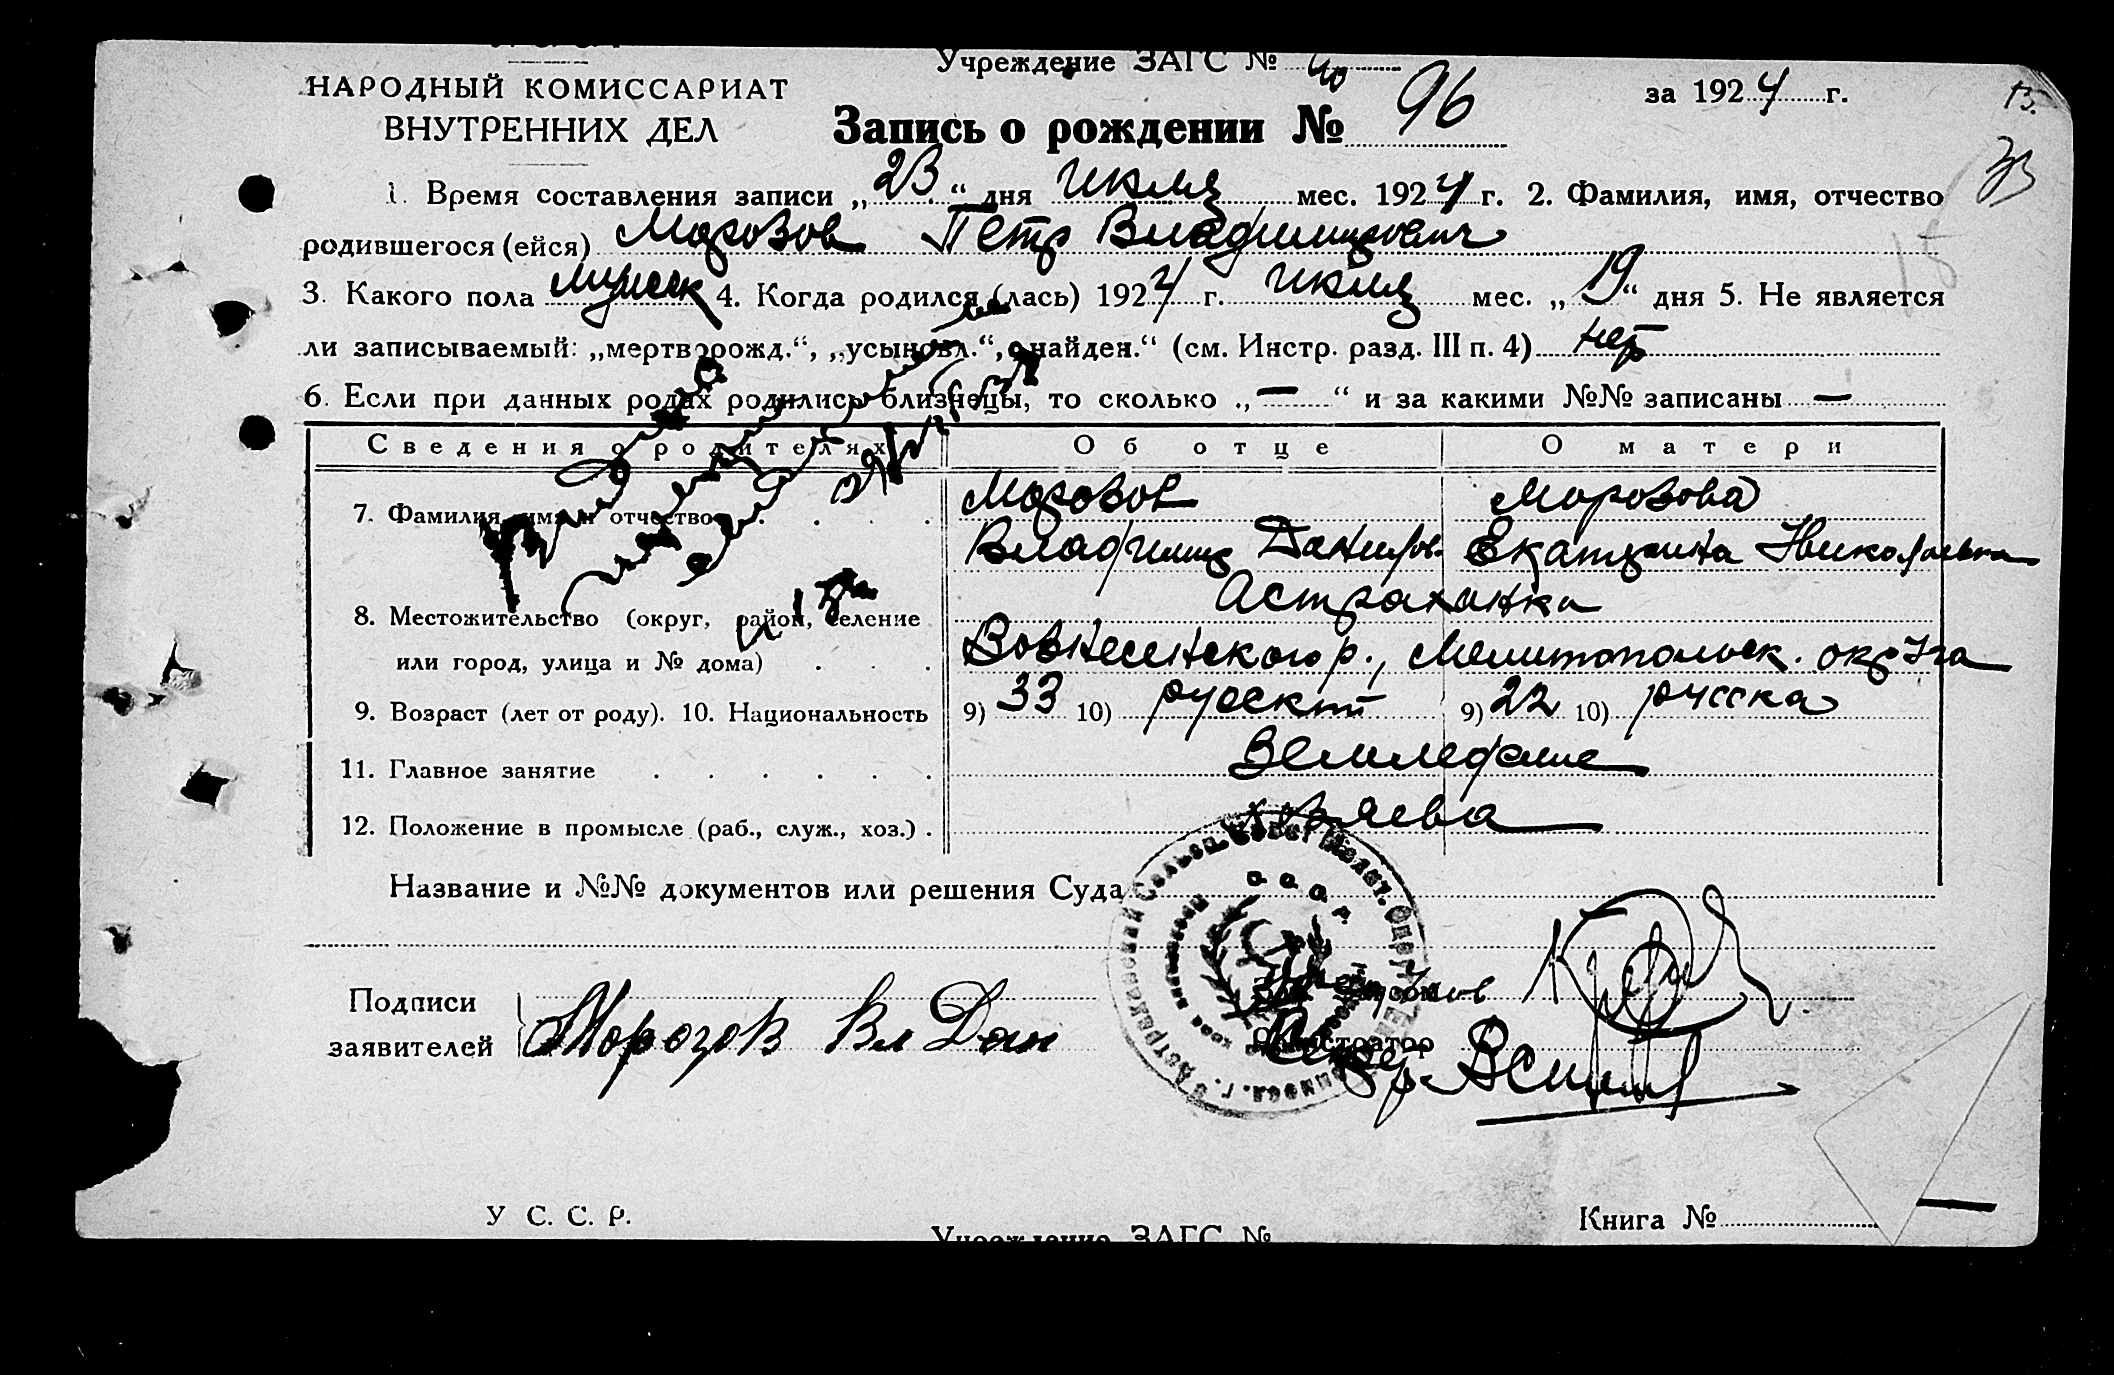 Учреждение ЗАГС №
НАРОДНЫЙ КОМИССАРИАТ
ВНУТРЕННИХ ДЕЛ
Запись о рождении № 96
за 1924 г.
1. Время составления записи „23“ дня июля мес. 1924 г. 2. Фамилия, имя, отчество
родившегося (ейся) Морозов Петр Владимирович
3. Какого пола мужск 4. Когда родился (лась) 1924 г. июля мес. „19“ дня 5. Не является
ли записываемый: „мертворожд.“, „усыновл.“, „найден.“ (см. Инстр. разд. III п. 4) нет
6. Если при данных родах родились близнецы, то сколько „—“ и за какими №№ записаны —
Сведения о родителях Об отце О матери
7. Фамилия, имя и отчество Морозов Морозова
Владимир Данилов. Екатерина Николаевна
Астраханка
8. Местожительство (округ, район, селение
или город, улица и № дома) Вознесенского р., Мелитопольск. округа
9. Возраст (лет от роду). 10. Национальность 9) 33 10) русский 9) 22 10) русска
11. Главное занятие Земледелие
12. Положение в промысле (раб., служ., хоз.) хозяева
Название и №№ документов или решения Суда
Подписи
заявителей Морозов Вл Дан
У С. С. Р.
Учреждение ЗАГС №
Книга №